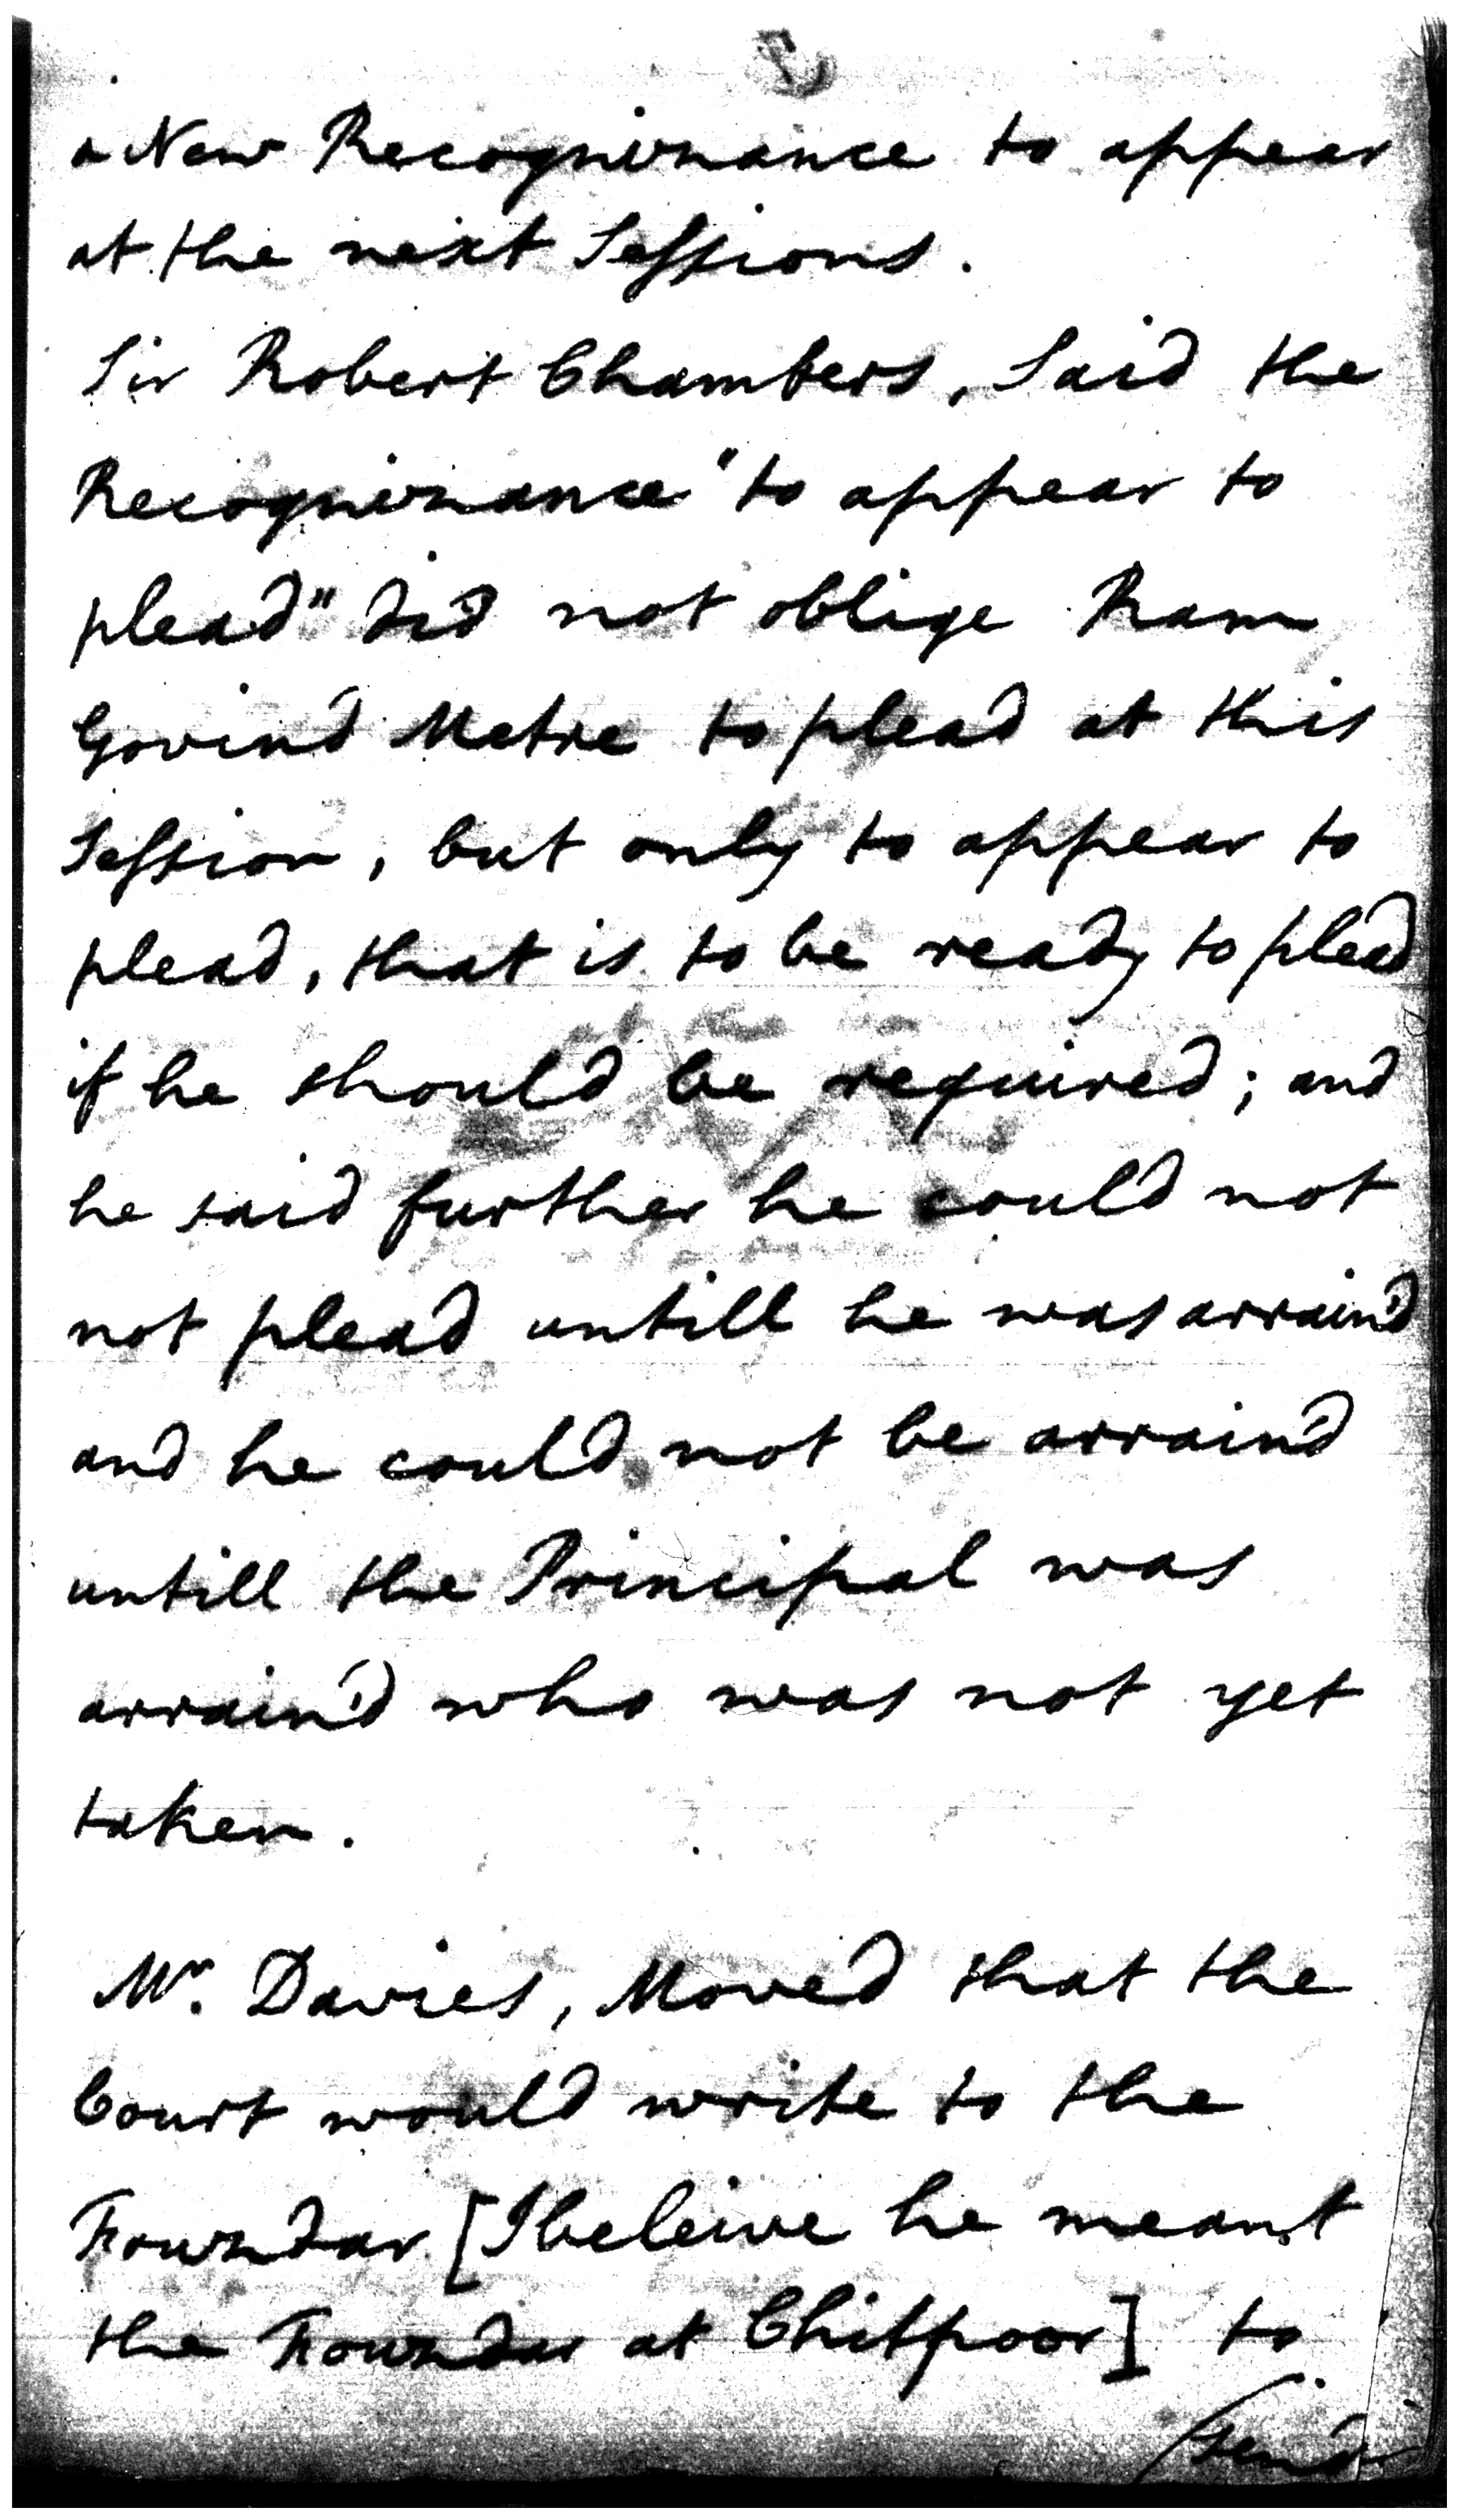 a New Recognizance to appear
at the next Sessions.
Sir Robert Chambers, Said the
Recognizance "to appear to
plead" did not oblige Ram
Govind Metre to plead at this
Session, but only to appear to
plead, that is to be ready to plead
if he should be required; and
he said further he could not
not plead untill he was arrain'd
and he could not be arrain'd
untill the Principal was
arrain'd who was not yet
taken.
Mr. Davies, Moved that the
Court would write to the
Fouzdar [I beleive he meant
the Fouzdar at Chitpoor] to
send